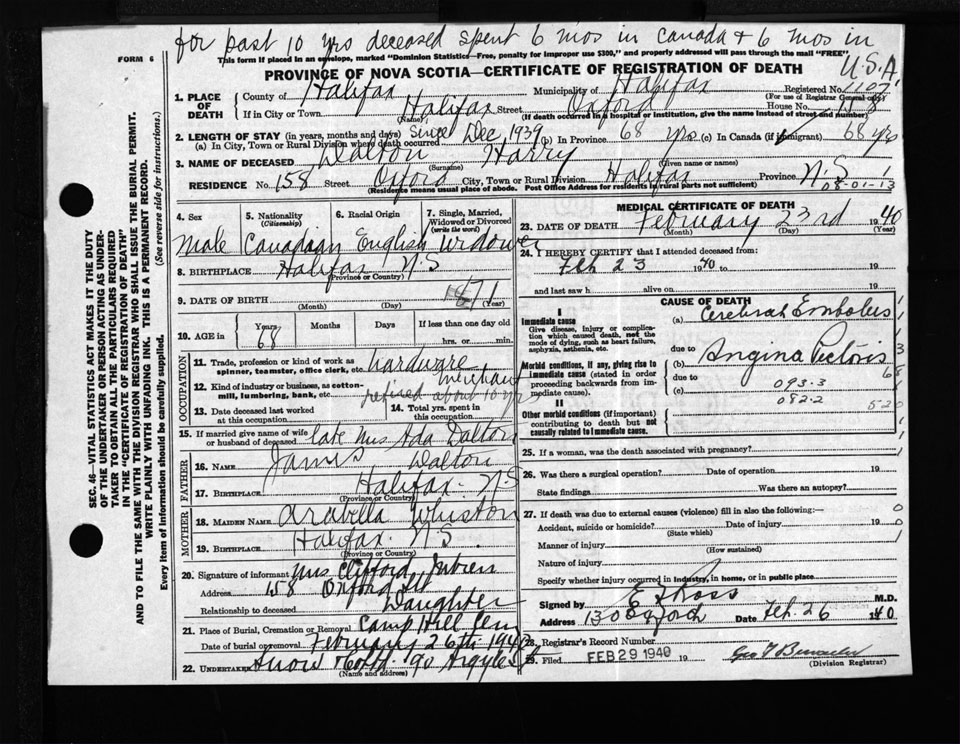 for past 10 yrs deceased spent 6 mos in Canada & 6 mos in U.S.A.
FORM 6
This form if placed in an envelope, marked "Dominion Statistics—Free, penalty for improper use $300," and properly addressed will pass through the mail "FREE".
PROVINCE OF NOVA SCOTIA—CERTIFICATE OF REGISTRATION OF DEATH
1. PLACE OF DEATH County of Halifax Municipality of Halifax Registered No. 1107
(For use of Registrar General only)
If in City or Town Halifax Street Oxford House No. 158
(Name) (If death occurred in a hospital or institution, give the name instead of street and number)
2. LENGTH OF STAY (in years, months and days)
(a) In City, Town or Rural Division where death occurred Since Dec 1939 (b) In Province 68 yrs (c) In Canada (if immigrant) 68 yrs
3. NAME OF DECEASED Dalton Harry
(Surname) (Given name or names)
RESIDENCE No. 158 Street Oxford City, Town or Rural Division Halifax Province N.S
(Residence means usual place of abode. Post Office Address for residents in rural parts not sufficient)
08-01-13
4. Sex 5. Nationality (Citizenship) 6. Racial Origin 7. Single, Married, Widowed or Divorced (write the word)
Male Canadian English Widower
8. BIRTHPLACE Halifax N.S
(Province or Country)
9. DATE OF BIRTH 1871
(Month) (Day) (Year)
10. AGE in Years Months Days If less than one day old
68 hrs. or min.
OCCUPATION
11. Trade, profession or kind of work as spinner, teamster, office clerk, etc. hardware merchant
12. Kind of industry or business, as cotton-mill, lumbering, bank, etc. retired about 10 yr
13. Date deceased last worked at this occupation
14. Total yrs. spent in this occupation
15. If married give name of wife or husband of deceased late Mrs Ada Dalton
FATHER
16. NAME James Dalton
17. BIRTHPLACE Halifax N.S
(Province or Country)
MOTHER
18. MAIDEN NAME Arabella Whiston
19. BIRTHPLACE Halifax N.S.
(Province or Country)
20. Signature of informant Mrs Clifford
Address 158 Oxford St
Relationship to deceased Daughter
21. Place of Burial, Cremation or Removal Camp Hill Cem
Date of burial or removal February 26th 1940
22. UNDERTAKER Snow & Co Ltd 90 Argyle St
(Name and address)
MEDICAL CERTIFICATE OF DEATH
23. DATE OF DEATH February 23rd 1940
(Month) (Day) (Year)
24. I HEREBY CERTIFY that I attended deceased from:
Feb 23 1940 to 19
and last saw h alive on 19
CAUSE OF DEATH
I
Immediate cause
Give disease, injury or complication which caused death, not the mode of dying, such as heart failure, asphyxia, asthenia, etc.
(a) Cerebral Embolus
due to
Morbid conditions, if any, giving rise to immediate cause (stated in order proceeding backwards from immediate cause).
(b) Angina Pectoris
due to 093-3
(c) 082-2
II
Other morbid conditions (if important) contributing to death but not causally related to immediate cause.
25. If a woman, was the death associated with pregnancy?
26. Was there a surgical operation? Date of operation 19
State findings Was there an autopsy?
27. If death was due to external causes (violence) fill in also the following:—
Accident, suicide or homicide? Date of injury 19
(State which)
Manner of injury
(How sustained)
Nature of injury
Specify whether injury occurred in industry, in home, or in public place
Signed by Ross M.D.
Address 130 Oxford Date Feb. 26 1940
28. Registrar's Record Number
29. Filed FEB 29 1940 19
(Division Registrar)
SEC. 46—VITAL STATISTICS ACT MAKES IT THE DUTY OF THE UNDERTAKER OR PERSON ACTING AS UNDERTAKER TO OBTAIN ALL THE PARTICULARS REQUIRED IN THE "CERTIFICATE OF REGISTRATION OF DEATH" AND TO FILE THE SAME WITH THE DIVISION REGISTRAR WHO SHALL ISSUE THE BURIAL PERMIT.
WRITE PLAINLY WITH UNFADING INK. THIS IS A PERMANENT RECORD.
Every item of information should be carefully supplied. (See reverse side for instructions.)